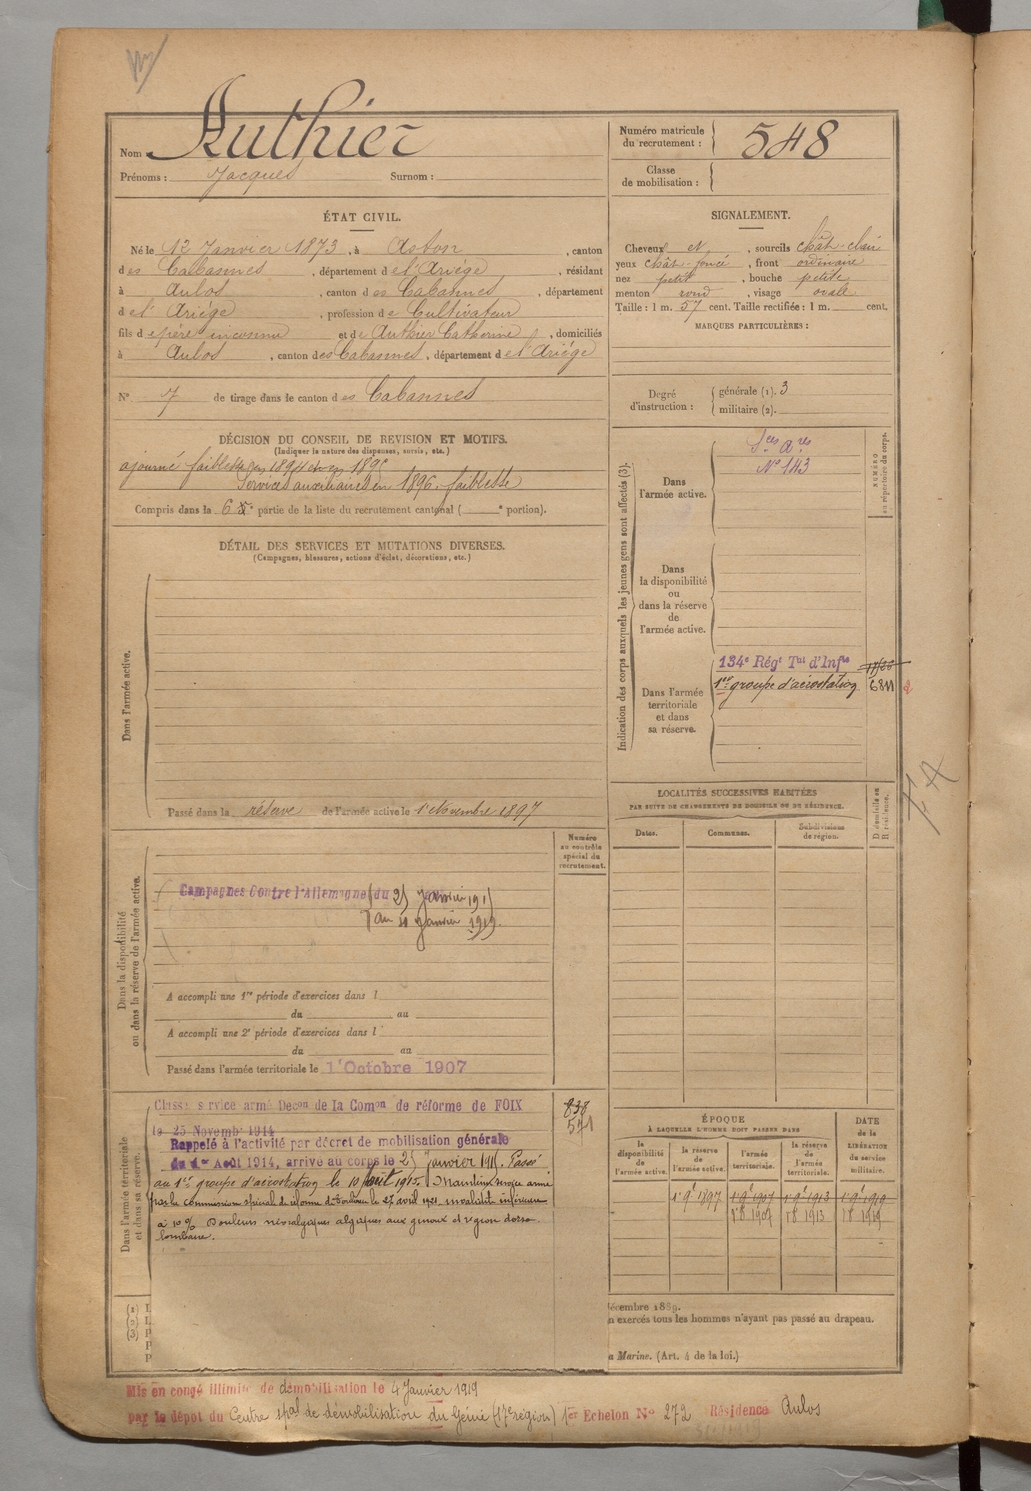 Nom Authier
Prénoms : Jacques Surnom :
Numéro matricule du recrutement : 548
Classe de mobilisation :
ÉTAT CIVIL.
Né le 12 Janvier 1873, à Aston, canton
des Cabannes, département de l'Ariège, résidant
à Aulos, canton des Cabannes, département
de l'Ariège, profession de Cultivateur
fils de père inconnu et de Authier Catherine, domiciliés
à Aulos, canton des Cabannes, département de l'Ariége
N° 7 de tirage dans le canton des Cabannes
SIGNALEMENT.
Cheveux et, sourcils chât-clair
yeux chât-foncé, front ordinaire
nez petit, bouche petite
menton rond, visage ovale
Taille : 1 m. 57 cent. Taille rectifiée : 1 m. cent.
MARQUES PARTICULIÈRES :
Degré d'instruction : générale (1). 3
militaire (2).
DÉCISION DU CONSEIL DE REVISION ET MOTIFS.
(Indiquer la nature des dispenses, sursis, etc.)
ajourné faiblesse en 1894 et en 1895
Services auxiliaires en 1896. faiblesse
Compris dans la 6e partie de la liste du recrutement cantonal ( e portion).
DÉTAIL DES SERVICES ET MUTATIONS DIVERSES.
(Campagnes, blessures, actions d'éclat, décorations, etc.)
Dans l'armée active.
Passé dans la réserve de l'armée active le 1er Novembre 1897
Indication des corps auxquels les jeunes gens sont affectés (3).
NUMÉRO au répertoire du corps.
Dans l'armée active.
Sces Ares
N° 143
Dans la disponibilité ou dans la réserve de l'armée active.
Dans l'armée territoriale et dans sa réserve.
134e Régt Tal d'Infie
1er groupe d'aérostation 6811
LOCALITÉS SUCCESSIVES HABITÉES
PAR SUITE DE CHANGEMENTS DE DOMICILE OU DE RÉSIDENCE.
Dates. Communes. Subdivisions de région. D domicile ou R résidence.
Dans la disponibilité ou dans la réserve de l'armée active.
Numéro au contrôle spécial du recrutement.
Campagnes Contre l'Allemagne (du 25 Janvier 1915
au 4 Janvier 1919.
A accompli une 1re période d'exercices dans l
du au
A accompli une 2e période d'exercices dans l
du au
Passé dans l'armée territoriale le 1er Octobre 1907
Dans l'armée territoriale et dans sa réserve.
Classé service armé Décon de la Comon de réforme de FOIX
le 25 Novemb 1914
Rappelé à l'activité par décret de mobilisation générale
du 1er Août 1914, arrivé au corps le 25 Janvier 1915. Passé
au 1er groupe d'aérostation le 10 Août 1915. Maintenu service armé
par la commission spéciale de réforme de Bordeaux le 27 avril 1921. invalidité inférieure
à 10% Douleurs névralgiques algiques aux genoux et région dorso-
lombaire.
838
541
ÉPOQUE
À LAQUELLE L'HOMME DOIT PASSER DANS
DATE de la LIBÉRATION du service militaire.
la disponibilité de l'armée active. la réserve de l'armée active. l'armée territoriale. la réserve de l'armée territoriale.
1er 9e 1897 1er 9e 1907 1er 9e 1913 1er 9e 1919
1 8 1907 1 8 1913 1 8 1919
(1) L
(2) L
(3) P
P
P
décembre 1889.
n exercés tous les hommes n'ayant pas passé au drapeau.
a Marine. (Art. 4 de la loi.)
Mis en congé illimité de démobilisation le 4 Janvier 1919
par le dépot du Centre spal de démobilisation du Génie (17e région) 1er Echelon N° 272 Résidence Aulos